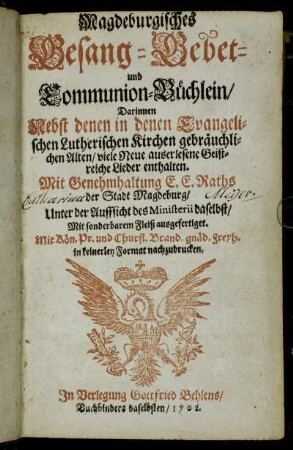 Magdeburgisches
Gesang-Gebet-
und
Communion-Büchlein/
Darinnen
Nebst denen in denen Evangeli-
schen Lutherischen Kirchen gebräuchli-
chen Alten/ viele Neue auserlesene Geist-
reiche Lieder enthalten.
Mit Genehmhaltung E. E. Raths
Catharina der Stadt Magdeburg/ Meyer.
Unter der Auffsicht des Ministerii daselbst/
Mit sonderbarem Fleiß ausgefertiget.
Mit Kön. Pr. und Churfl. Brand. gnäd. Freyh.
in keinerley Format nachzudrucken.
In Verlegung Gottfried Behlens/
Buchbinders daselbsten/ 1702.